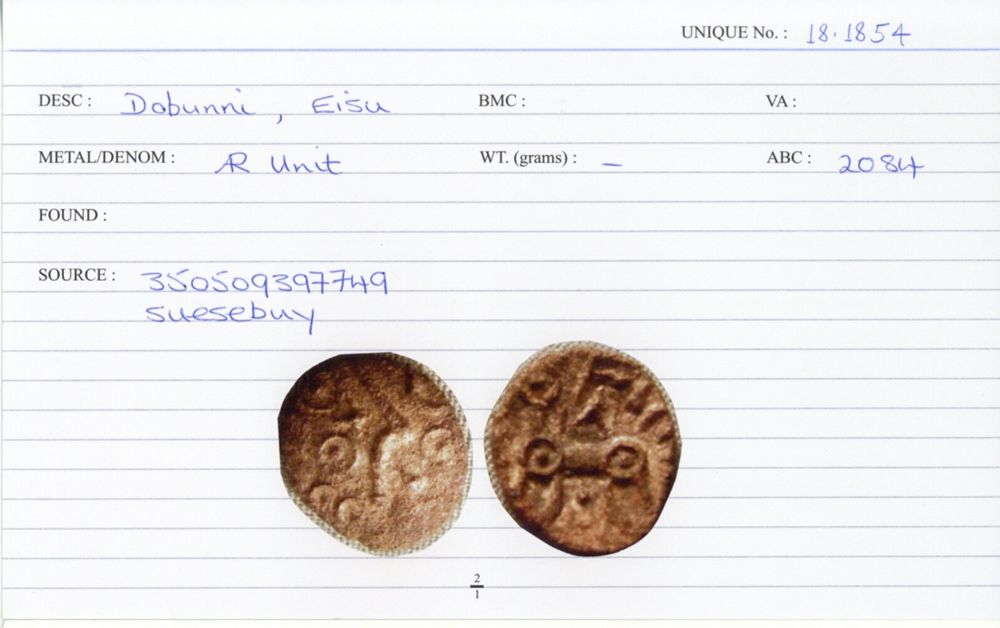 UNIQUE No. : 18.1854
DESC : Dobunni, Eisu BMC : VA :
METAL/DENOM : AR Unit WT. (grams) : – ABC : 2084
FOUND :
SOURCE : 350509397749
suesebuy
2
1